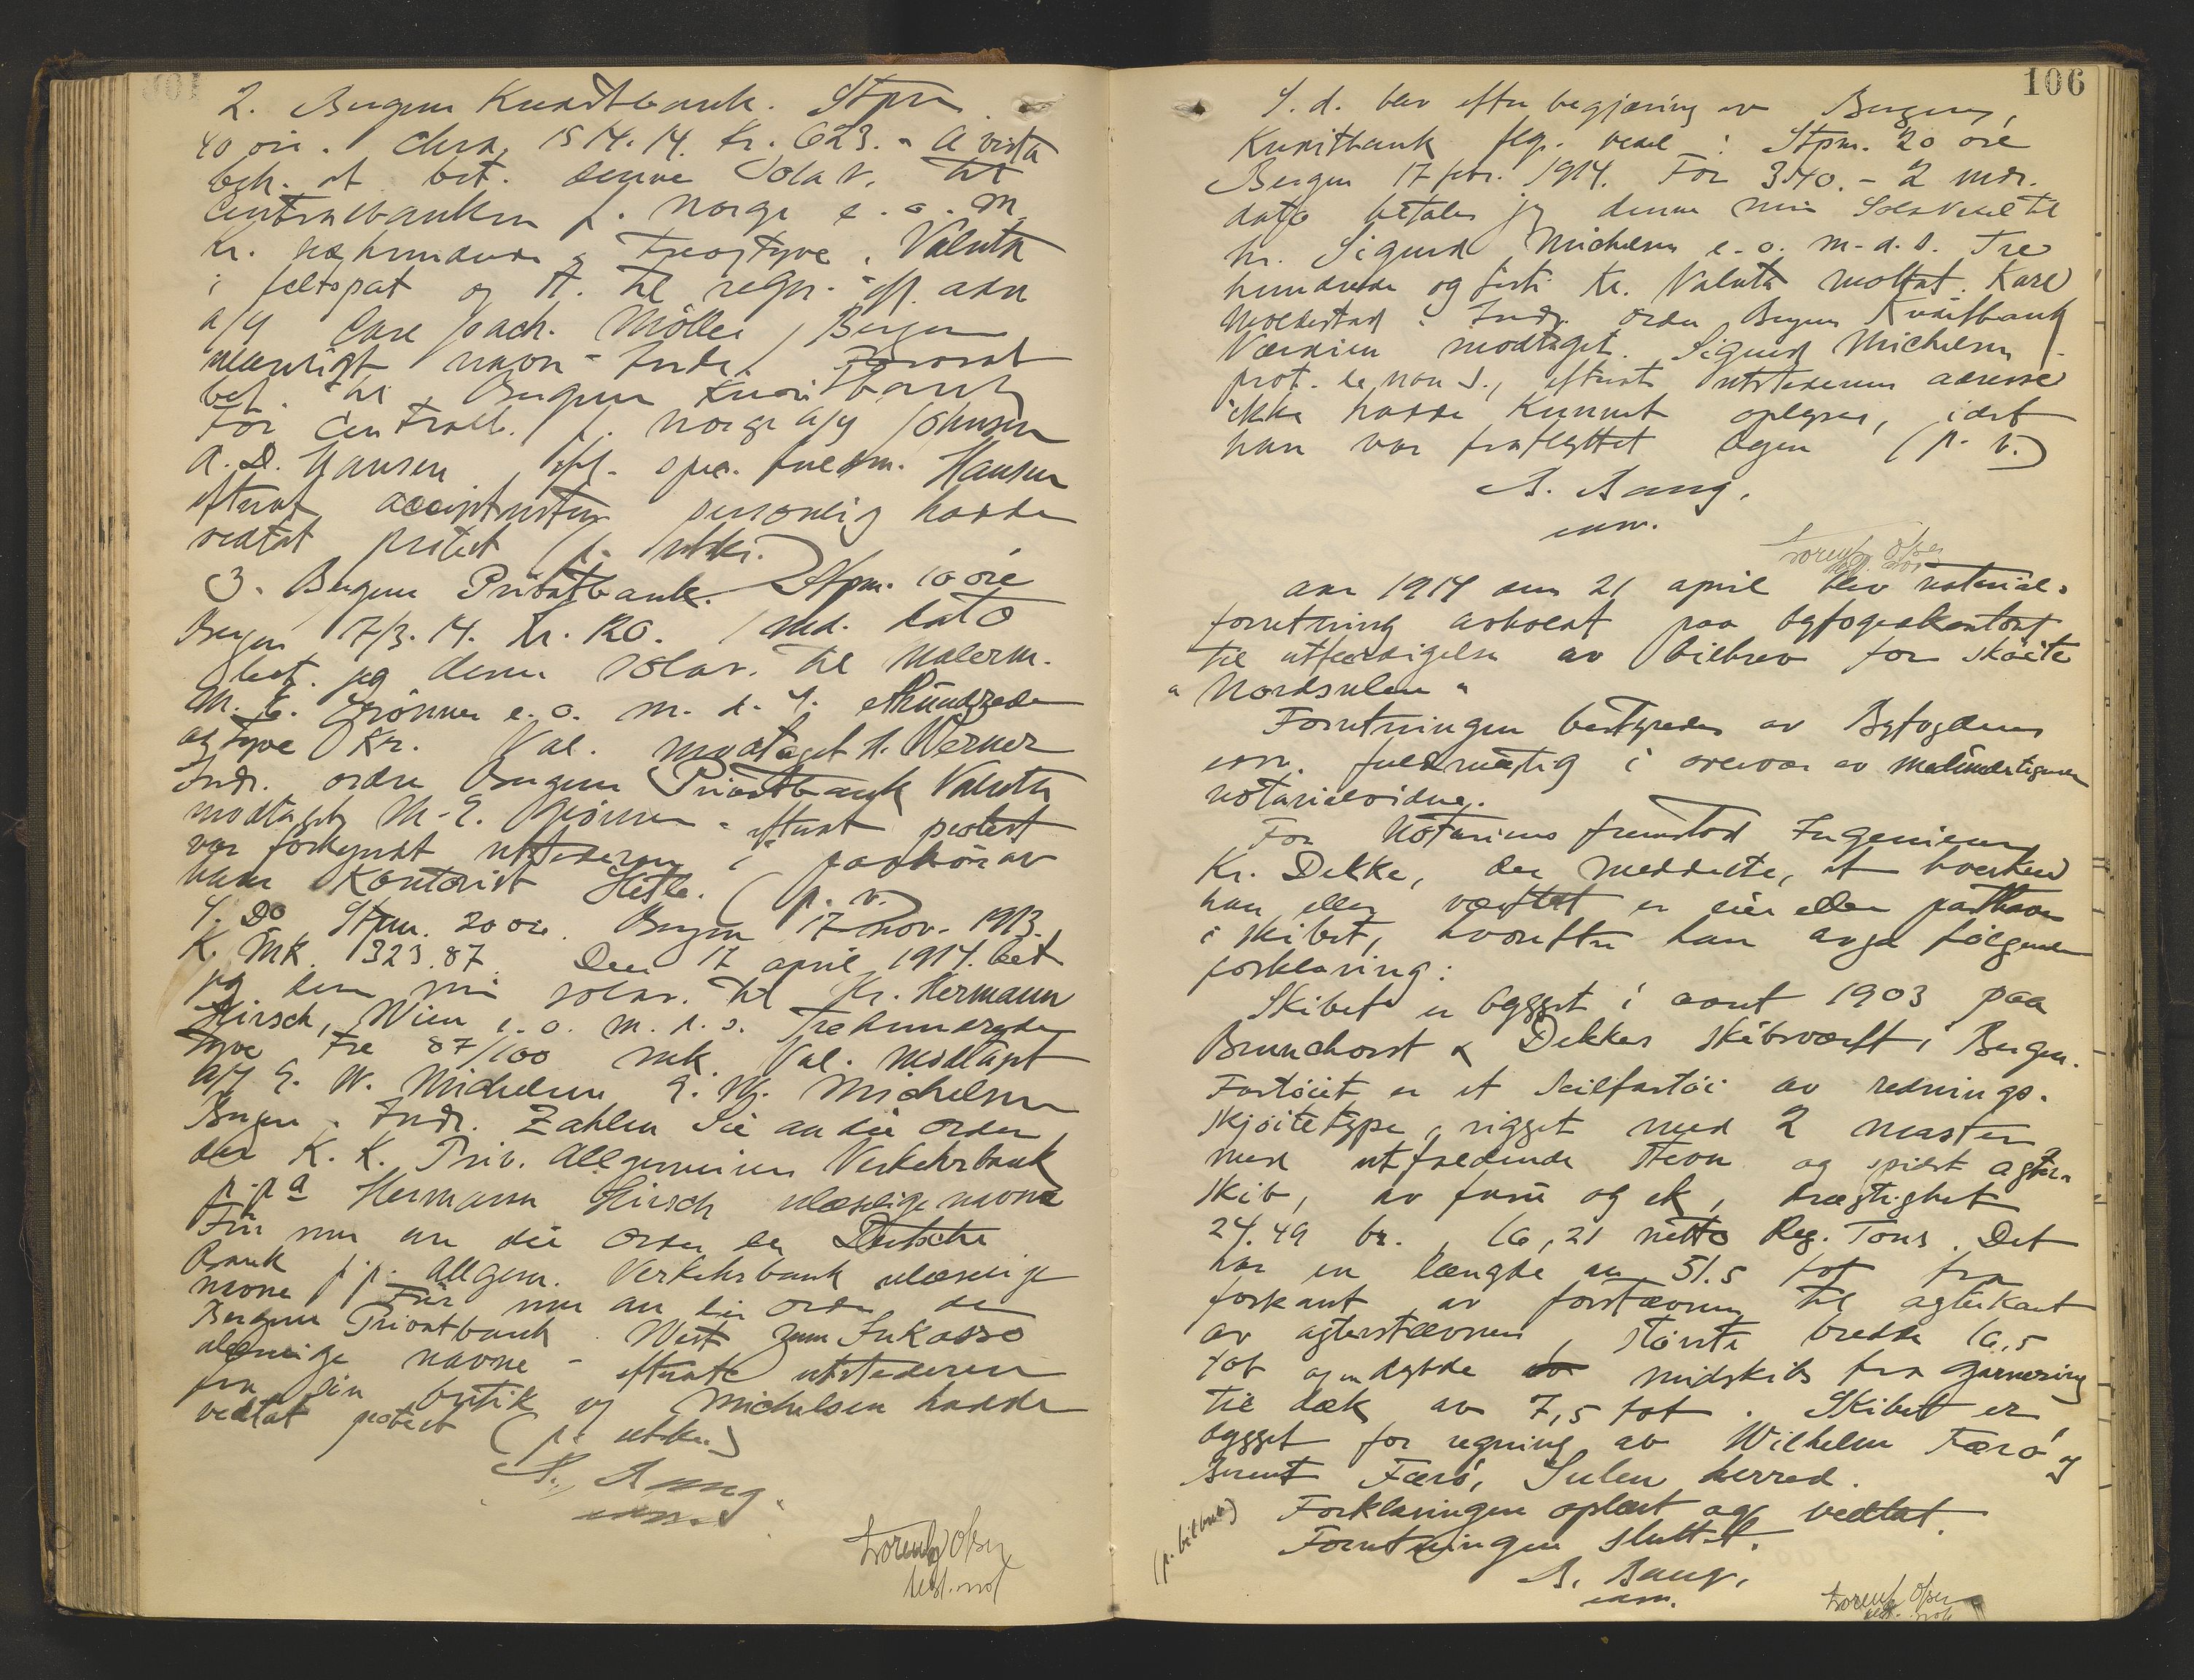 2. Bergens Kreditbank. Stpm
40 øre. Chra. 15/4.14. Kr. 623.- A vista
beh. at bet. denne Sola v. til
Centralbanken f. Norge e. o. m.
Kr. sexhundrede og treogtyve. Valuta
i feltspat og st. til regn. -
a/s Carl Joach. Möller, Bergen
ulæseligt navn - Inds.
bet. til Bergens Kreditbank
For Centralb. f. Norge a/s Johnsen
A. D. Hansen, spec. fuldm. Hansen
efterat personlig hadde
vedtat protest (p. utkl.)
3. Bergens Privatbank. Stpm. 10 øre
Bergen 7/3.14. Kr. 120. 1 md. dato
bet. jeg denne Solav. til Malerm.
M. E. Grönner e. o. m. d. s. ethundrede
og tyve Kr. Val. modtaget A. Werner
Inds. ordre Bergens Privatbank Valuta
modtaget M. E. Grönner - efterat protest
var forkyndt utstederen i paahør av
hans Kontorist Hitle. (p. v.)
4. Do Stpm. 20 øre. Bergen 17 nov. 1913.
R. MK. 323.87. Den 17 april 1914. bet
jeg denne min solav. til Hr. Hermann
Hirsch, Wien e. o. m. d. s. Trehundrede
tyve tre 87/100 mk. Val. modtaget
a/s E. W. Michelsen E. W. Michelsen
Bergen. Inds. Zahlen Sie an die Order
der K. K. Priv. Allgemeinen Verkehrbank
p. pa Hermann Hirsch ulæselige navne
Für mich an die Order der Deutsche
Bank p.p. Allgem. Verkehrsbank ulæselige
navne Für mich an die Order der
Bergens Privatbank. Wert zum Inkasso
ulæselige navne - efterat utstederen
fra sin butik v/ Michelsen hadde
vedtat protest (p. utkl.)
A. Bang.
com.
Lorentz Olsen
test. not
106
S. d. blev efter begjæring av Bergens
Kreditbank flg. vexel: Stpm. 20 øre
Bergen 17 febr. 1914. For 340.- 2 mdr.
dato betaler jeg denne min Solavexel til
hr. Sigurd Michelsen e. o. m. d. s. Tre
hundrede og firti Kr. Valuta mottat. Karl
Moldestad. Inds. ordre Bergens Kreditbank
Værdien modtaget. Sigurd Michelsen -
prot. de non s., efterat utstederens adresse
ikke hadde kunnet oplyses, idet
han var fraflyttet byen (p. v.)
A. Bang.
com.
Lorentz Olsen
Aar 1914 den 21 april blev notarial-
forretning avholdt paa byfogedkontoret
til utfærdigelse av bilbrev for skøite
"Nordsulen"
Forretningen bestyredes av Byfogdens
com. fuldmægtig i overvær av medundertegnede
notarialvidne.
For Notarius fremstod Ingeniør
Kr. Dekke, der meddelte, at hverken
han eller værftet er eier eller parthaver
i skibet, hvorefter han avga følgende
forklaring:
Skibet er bygget i aaret 1903 paa
Brunchorst & Dekkes skibsværft i Bergen.
Fartøiet er et seilfartøi av rednings-
skjøitetype, rigget med 2 master
med utfaldende stevn og spidst agter-
skib, av furu og ek, drægtighet
24.49 br., 16,21 netto Reg. Tons. Det
har en længde av 51.5 fot fra
forkant av forstævnen til agterkant
av agterstævnen, største bredde 16,5
fot og en dybde midskibs fra garnering
til dæk av 7,5 fot. Skibet er
bygget for regning av Wilhelm Færø og
Bernt Færø, Sulen herred.
Forklaringen oplæst og vedtat.
Forretningen sluttet.
(p. bilbrev)
A. Bang.
com.
Lorentz Olsen
test. not